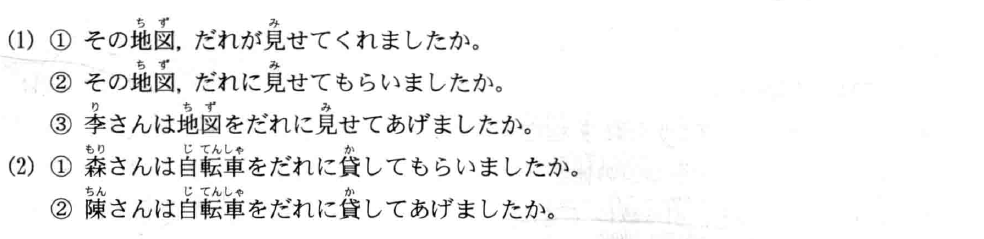 (1) ① その地図, だれが見せてくれましたか。
② その地図, だれに見せてもらいましたか。
③ 李さんは地図をだれに見せてあげましたか。
(2) ① 森さんは自転車をだれに貸してもらいましたか。
② 陳さんは自転車をだれに貸してあげましたか。